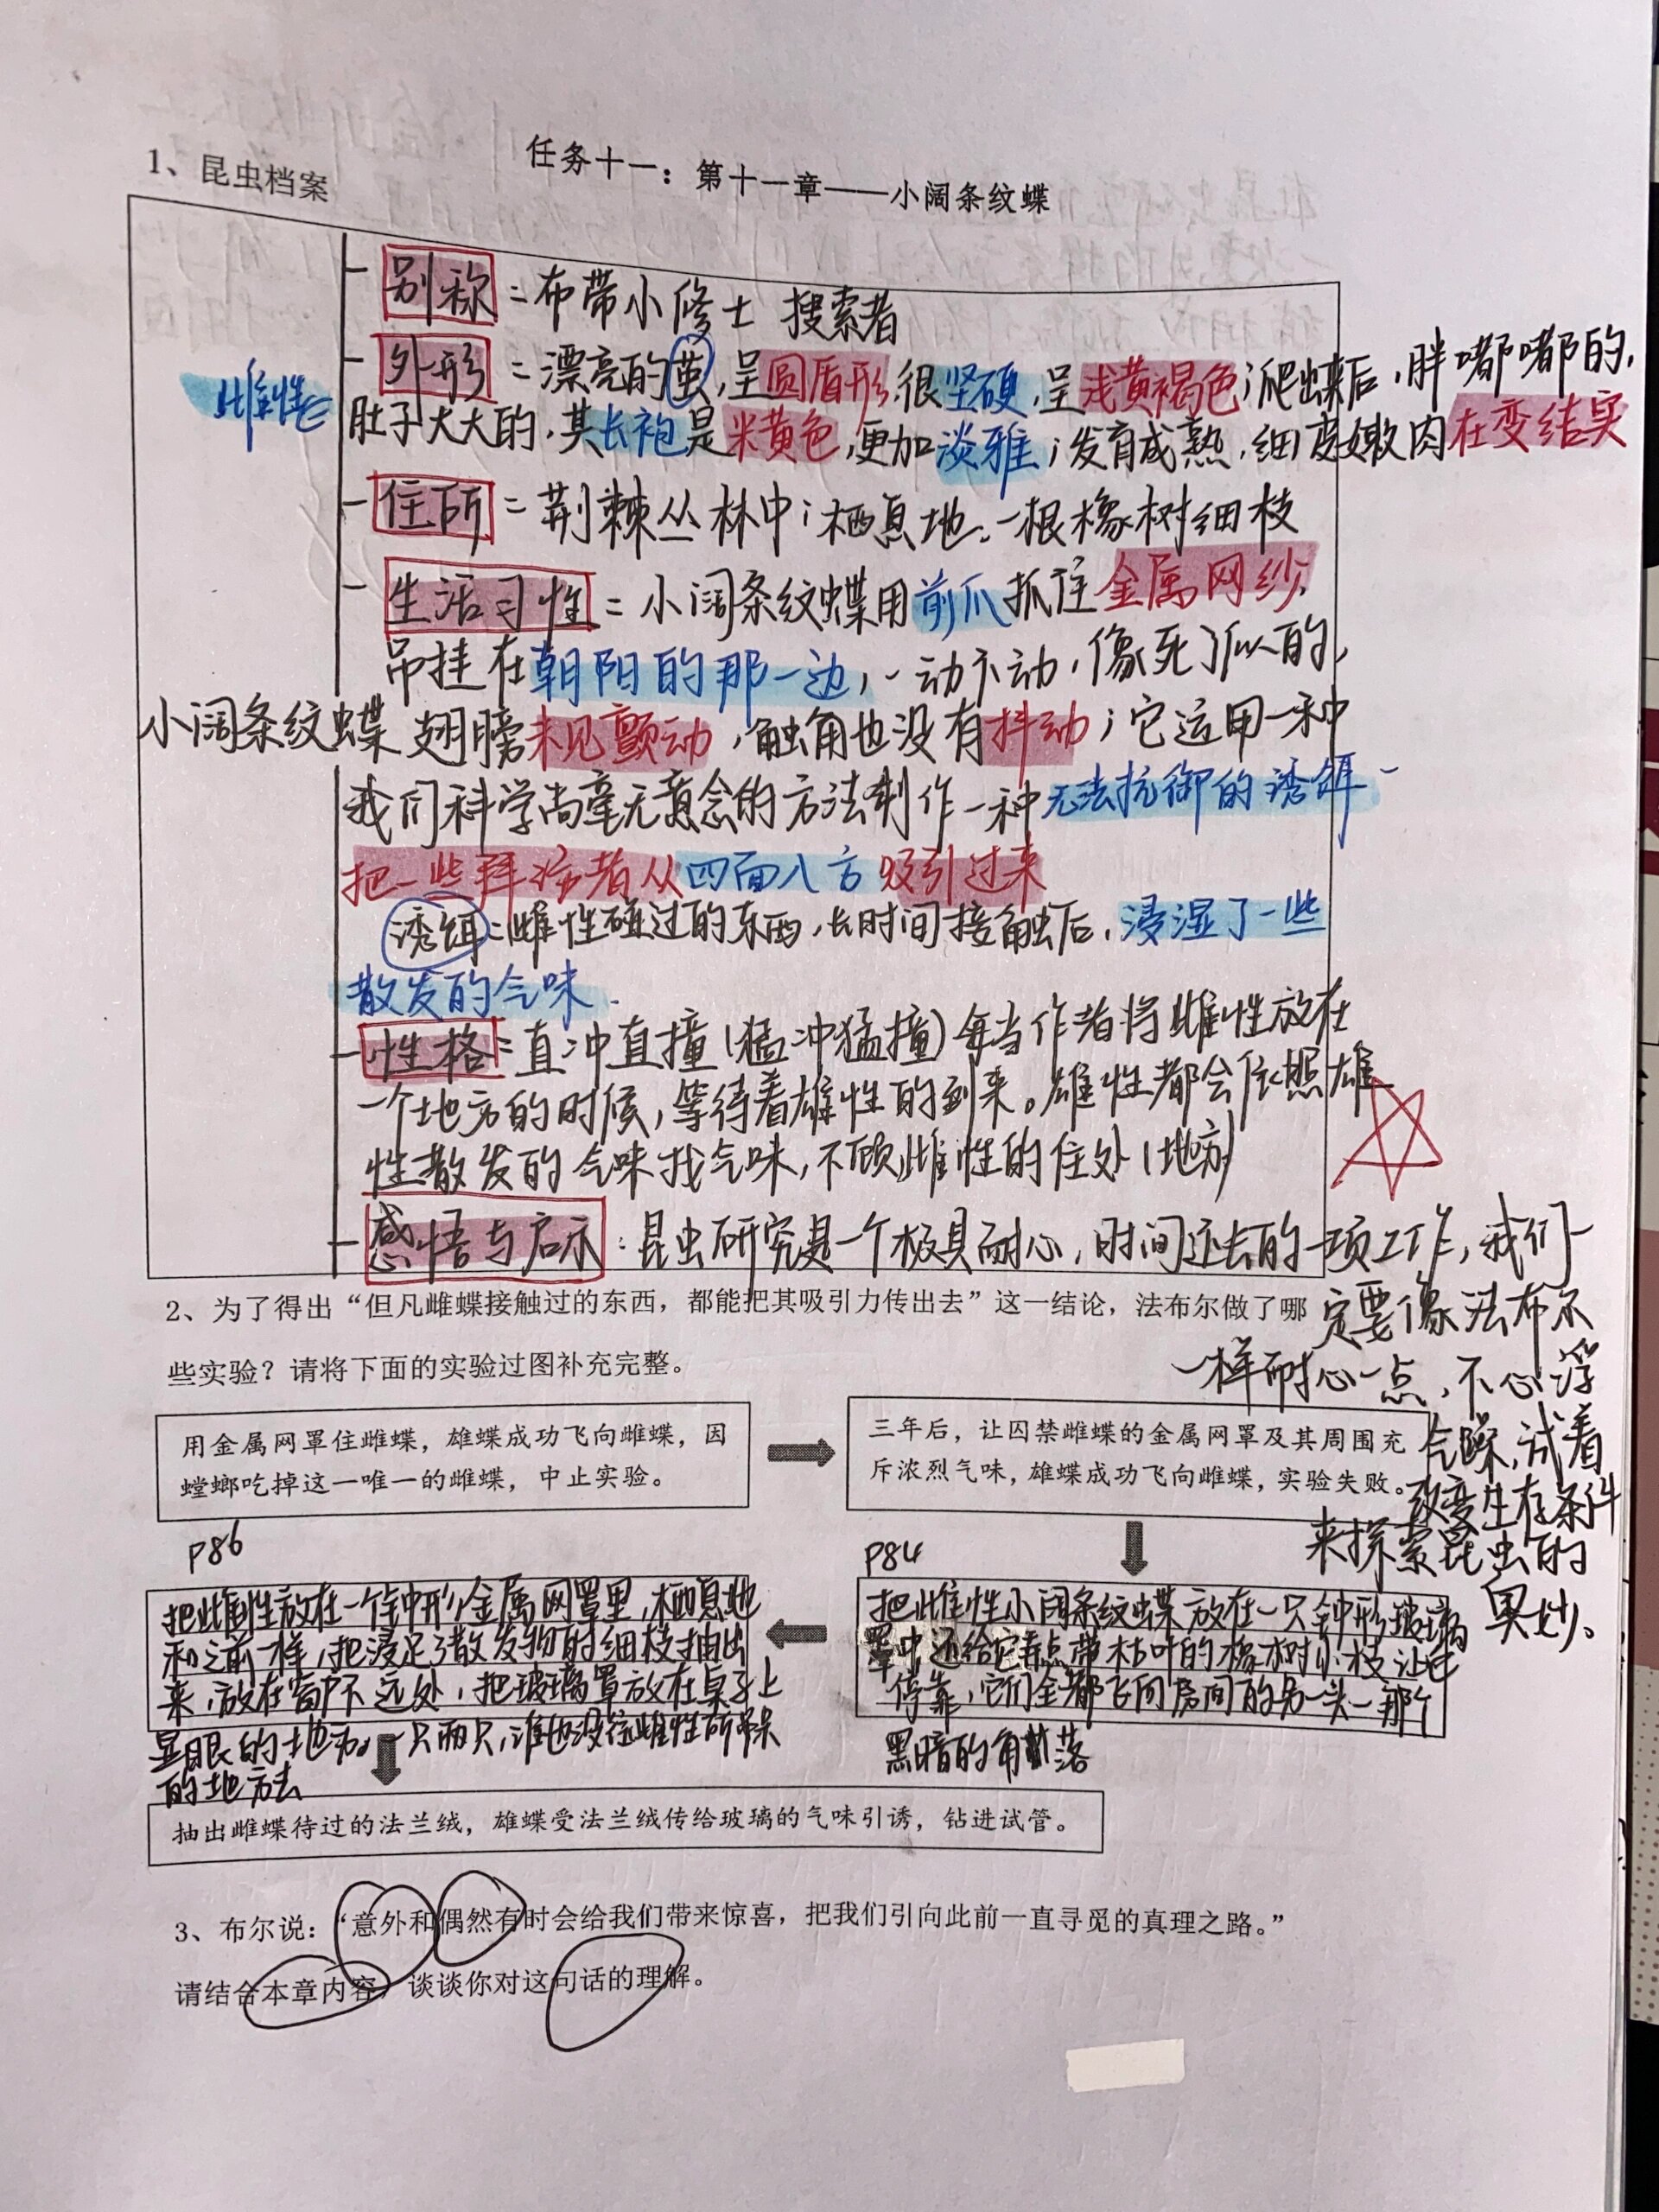 任务十一：第十一章——小阔条纹蝶
1、昆虫档案
雌性=
- 别称=布带小修士 搜索者
- 外形=漂亮的茧,呈圆盾形,很坚硬,呈浅黄褐色;爬出来后,胖嘟嘟的,
肚子大大的,其长袍是米黄色,更加淡雅;发育成熟,细皮嫩肉在变结实
- 住所=荆棘丛林中;栖息地:一根橡树细枝
- 生活习性=小阔条纹蝶用前爪抓住金属网纱,
吊挂在朝阳的那一边,一动不动,像死了似的,
小阔条纹蝶翅膀未见颤动,触角也没有抖动;它运用一种
我们科学尚毫无意念的方法制作一种无法抗御的诱饵、
把一些拜访者从四面八方吸引过来
诱饵:雌性碰过的东西,长时间接触后,浸湿了一些
散发的气味.
- 性格=直冲直撞(猛冲猛撞)每当作者将雌性放在
一个地方的时候,等待着雄性的到来。雄性都会依照雄
性散发的气味找气味,不顾雌性的住处(地方)
- 感悟与启示:昆虫研究是一个极具耐心,时间还长的一项工作,我们一
定要像法布尔
一样耐心一点,不心浮
气躁,试着
改变生存条件
来探索昆虫的
奥妙。
2、为了得出“但凡雌蝶接触过的东西，都能把其吸引力传出去”这一结论，法布尔做了哪
些实验？请将下面的实验过图补充完整。
用金属网罩住雌蝶，雄蝶成功飞向雌蝶，因
螳螂吃掉这一唯一的雌蝶，中止实验。
三年后，让囚禁雌蝶的金属网罩及其周围充
斥浓烈气味，雄蝶成功飞向雌蝶，实验失败。
P84
把雌性小阔条纹蝶放在一只钟形玻璃
罩中还给它弄点带枯叶的橡树小枝让它
停靠,它们全都飞向房间的另一头一那个
黑暗的角落
P86
把雌性放在一个钟形金属网罩里,栖息地
和之前一样,把浸足了散发物的细枝抽出
来,放在窗户不远处,把玻璃罩放在桌子上
显眼的地方。一只两只,谁也没往雌性所呆
的地方去
抽出雌蝶待过的法兰绒，雄蝶受法兰绒传给玻璃的气味引诱，钻进试管。
3、布尔说：“意外和偶然有时会给我们带来惊喜，把我们引向此前一直寻觅的真理之路。”
请结合本章内容，谈谈你对这句话的理解。